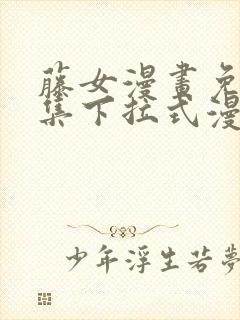 藤女漫畫免
集下拉式漫
少年浮生若夢